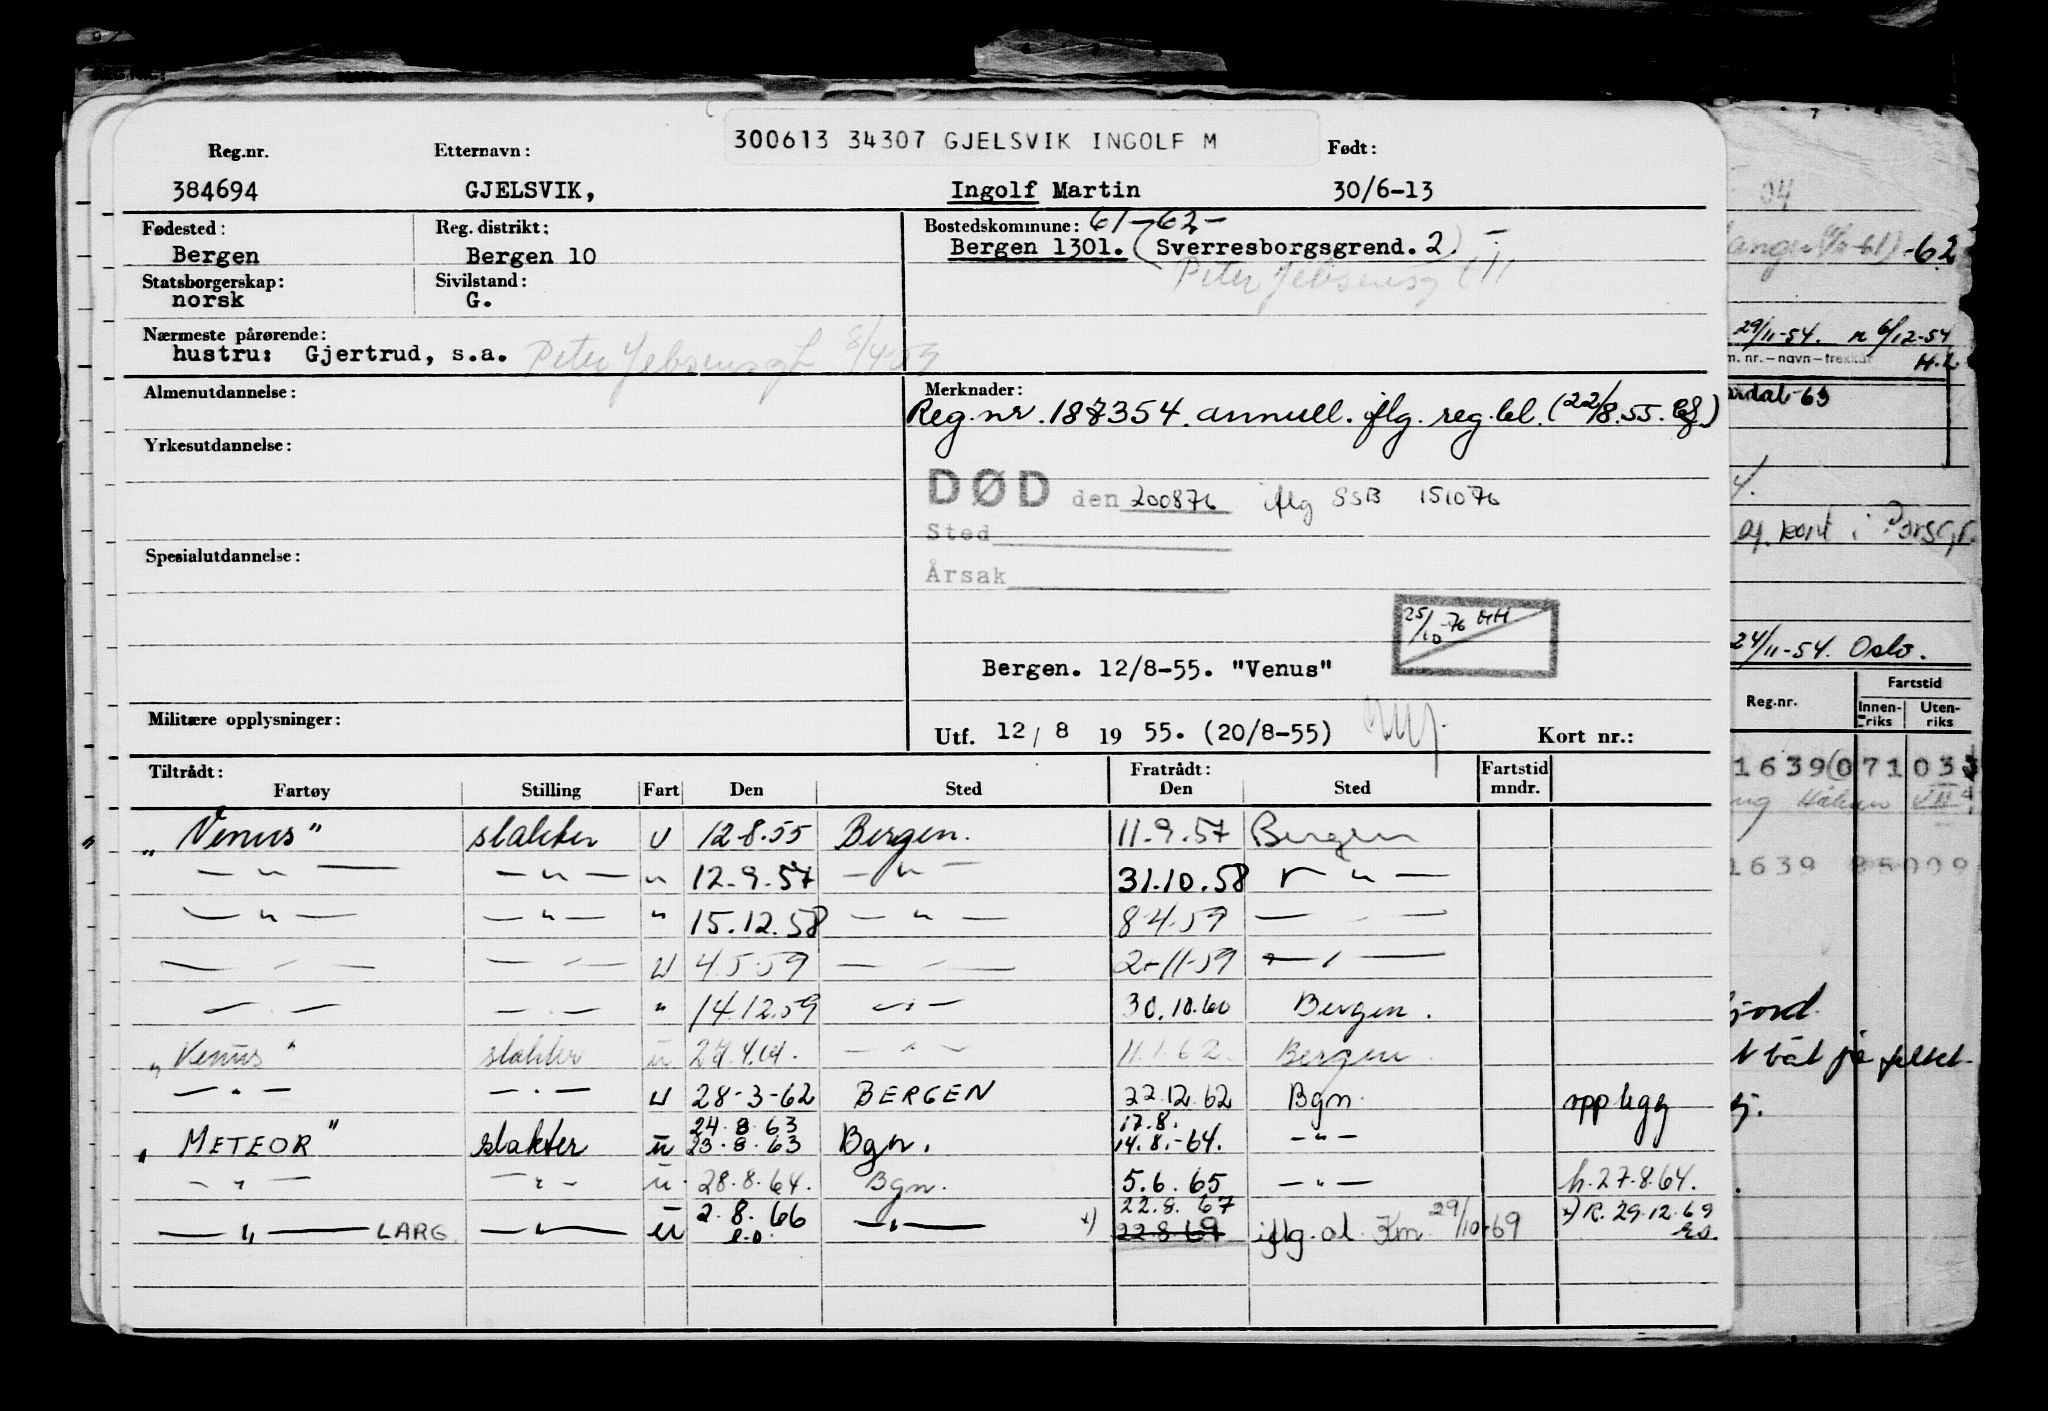 300613 34307 GJELSVIK INGOLF M
Reg.nr. Etternavn: Født:
384694 GJELSVIK, Ingolf Martin 30/6-13
Fødested: Reg. distrikt: Bostedskommune: 61-62-
Bergen Bergen 10 Bergen 1301. (Sverresborgsgrend. 2)
Peter Jebsensg
Statsborgerskap: Sivilstand:
norsk G.
Nærmeste pårørende:
hustru: Gjertrud, s.a. Peter Jebsensg 8/4-59
Almenutdannelse: Merknader:
Reg.nr. 187354. annull. iflg. reg.bl. (22/8.55.
Yrkesutdannelse:
DØD den 200876 iflg SSB 151076
Sted
Spesialutdannelse:
Årsak
25/10-76
Bergen. 12/8-55. "Venus"
Militære opplysninger:
Utf. 12/8 1955. (20/8-55) Kort nr.:
Tiltrådt: Fratrådt: Fartstid
Fartøy Stilling Fart Den Sted Den Sted mndr.
" „ Venus" slakter U 12-8.55 Bergen. 11.9.57 Bergen
— " — — " — " 12.9.57 — " — 31.10.58 — " —
— " — — " — " 15.12.58 — " — 8-4.59 — —
— " — — " — U 4.5.59 — " — 2-11-59 — " —
— . — — . — " 14.12.59 — " — 30.10.60 Bergen.
„ Venus" slakter u — " — 11.1.62. Bergen.
— " — — . — U 28-3-62 BERGEN 22.12.62 Bgn. opplegg
24.8.63 17.8.
„ METEOR" slakter u 23.8.63 Bgn. 14.8.-64. — " —
— " — — " — u. 28.8.64. Bgn. 5.6.65 — " — h.27.8.64.
2.8.66 22.8.67 x) R. 29.12.69
— " — LARG — " — u — " — x) 22.8.69 iflg. Km. 29/10-69
04
-62
29/11-54. 6/12-54
m. nr.-navn-trekkår H.L
-63
kort i Porsgr.
24/11-54. Oslo.
Fartstid
Reg.nr. Innen-riks Uten-riks
1639 071033
1639 88009
jord.
t båt på feltet.